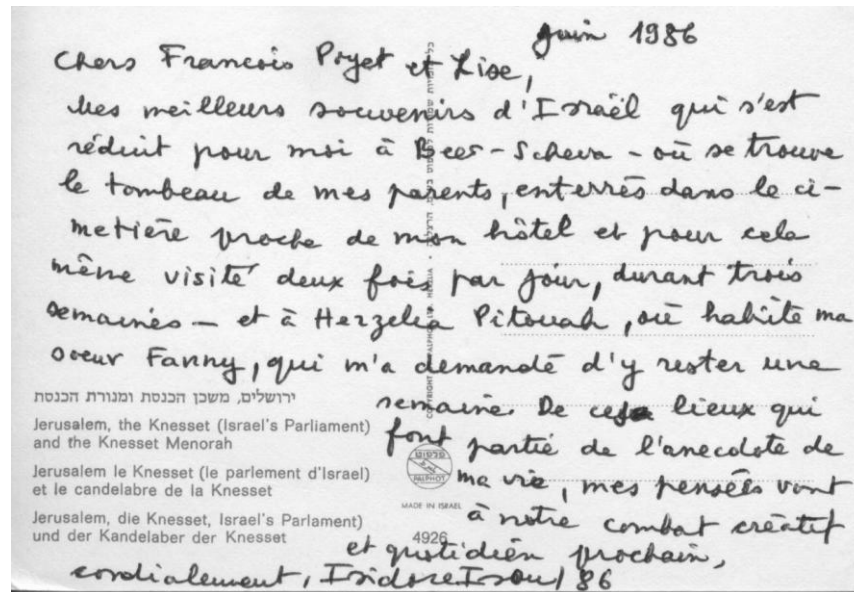 juin 1986
Chers Francois Poyet et Lise,
Mes meilleurs souvenirs d'Israël qui s'est
réduit pour moi à Beer-Scheva - où se trouve
le tombeau de mes parents, enterrés dans le ci-
metière proche de mon hôtel et pour cela
même visité deux fois par jour, durant trois
semaines - et à Herzelia Pitouah, où habite ma
soeur Fanny, qui m'a demandé d'y rester une
semaine. De ces lieux qui
font partie de l'anecdote de
ma vie, mes pensées vont
à notre combat créatif
et quotidien prochain,
cordialement, Isidore Isou / 86
ירושלים, משכן הכנסת ומנורת הכנסת
Jerusalem, the Knesset (Israel's Parliament)
and the Knesset Menorah
Jerusalem le Knesset (le parlement d'Israel)
et le candelabre de la Knesset
Jerusalem, die Knesset, Israel's Parlament)
und der Kandelaber der Knesset
פלפוט
PALPHOT
MADE IN ISRAEL
4926
COPYRIGHT PALPHOT LTD. HERZLIA